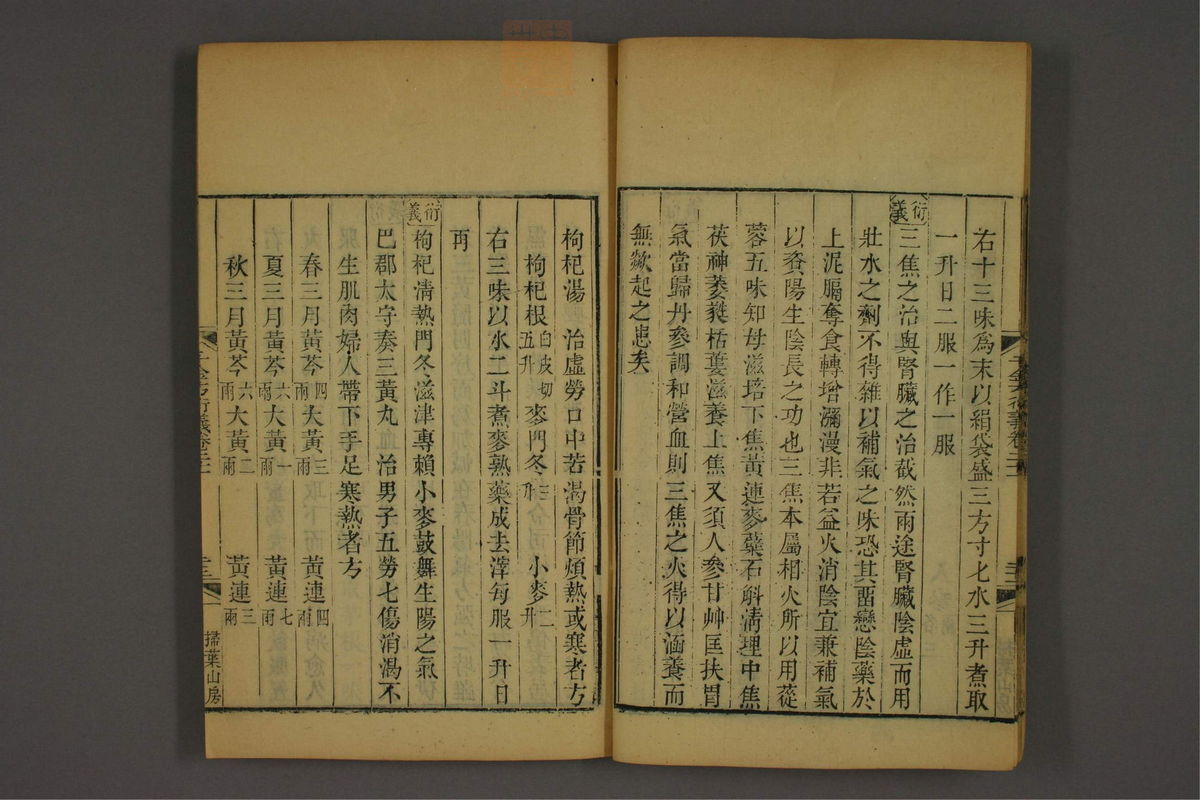 右十三味為末以絹袋盛三方寸匕水三升煮取
一升日二服一作一服
衍義
三焦之治與腎臟之治截然兩途腎臟陰虛而用
壯水之劑不得雜以補氣之味恐其畱戀陰藥於
上泥膈奪食轉增瀰漫非若益火消陰宜兼補氣
以資陽生陰長之功也三焦本屬相火所以用蓯
蓉五味知母滋培下焦黃連麥蘖石斛淸理中焦
茯神萎蕤栝蔞滋養上焦又須人參甘艸匡扶胃
氣當歸丹參調和營血則三焦之火得以涵養而
無歘起之患矣
枸杞湯 治虛勞口中苦渴骨節煩熱或寒者方
枸杞根五升白皮切 麥門冬三升 小麥二升
右三味以水二斗煮麥熟藥成去滓每服一升日
再
衍義
枸杞淸熱門冬滋津專賴小麥鼓舞生陽之氣
巴郡太守奏三黃丸 治男子五勞七傷消渴不
生肌肉婦人帶下手足寒熱者方
春三月黃芩四兩大黃三兩 黃連四兩
夏三月黃芩六兩大黃一兩 黃連七兩
秋三月黃芩六兩大黃二兩 黃連三兩
掃葉山房